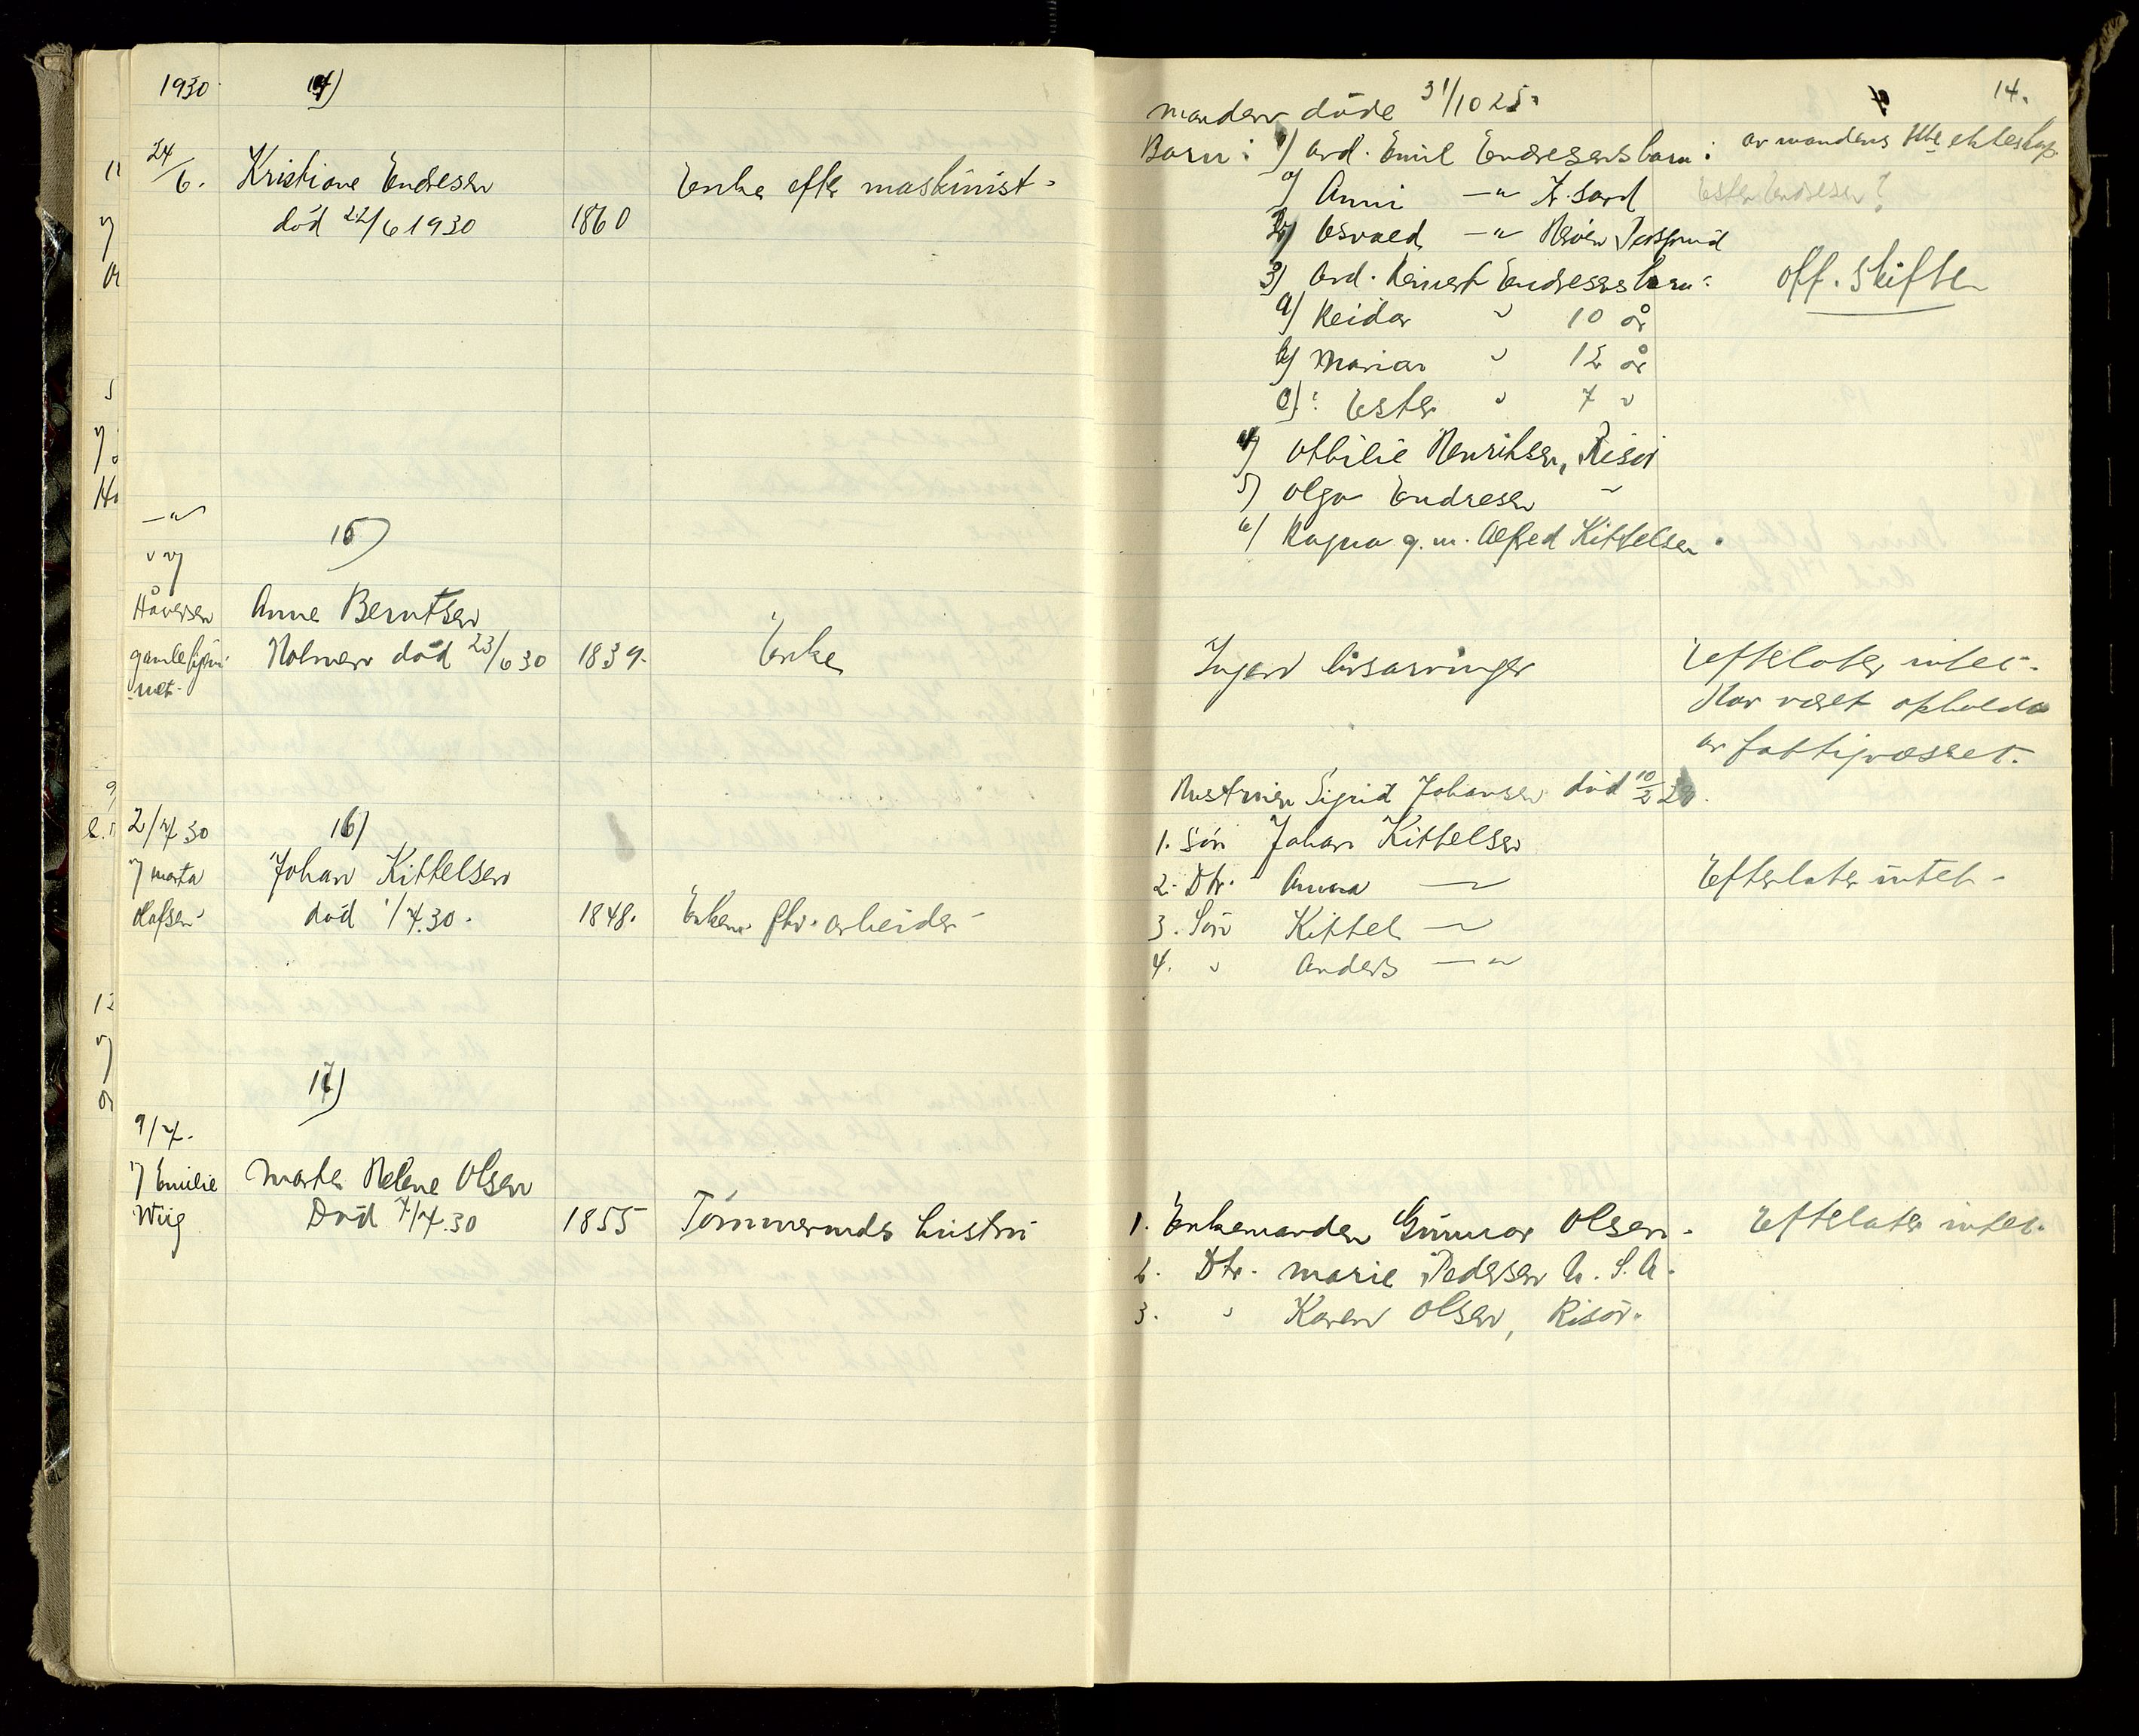 1930
14)
24/6.
Kristiane Endresen
død 22/6 1930
1860
Enke efter maskinist.
15)
Anne Berntsen
Holmen død 23/6 30
1839.
Enke
2/7 30
16)
Johan Kittelsen
død 1/7.30.
1848.
Enkem. fhv. arbeider
17)
9/7.
v/ Emilie
Wiig
Marte Helene Olsen
Død 7/7.30
1855
Tømmermds hustru
14.
manden døde 31/10 25.
Barn: 1) avd. Emil Endresens barn:
av mandens 1ste ekteskap
a) Anni —"—
Ester Endresen?
b) Osvald —"—
3) Avd. Reinert Endresens barn:
off. skifte
a) Reidar " 10 år
b) Marian " 12 år
c)? Ester " 7 "
4) Otbilie Henriksen, Risør
5) Olga Endresen "
6) Ragna g. m. Alfred Kittelsen.
Ingen livsarvinger
Efterlater intet.
Har været opholdt
av fattigvæsenet.
Hustruen Sigrid Johansen død 10/2
1. Søn Johan Kittelsen
2. Dtr. Anna —
Efterlater intet.
3. Søn Kittel —
4. " Anders —"—
1. Enkemanden Gunnar Olsen.
Efterlater intet.
2. Dtr. Marie Pedersen U. S. A.
3. " Karen Olsen, Risør.